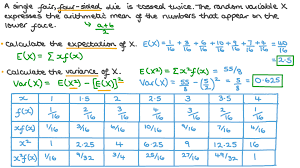 A single fair, four-sided die is tossed twice. The random variable X
expresses the arithmetic mean of the numbers that appear on the
lower face. ↳ a+b/2
• Calculate the expectation of X.
E(X) = Σ x f(x)
E(X) = 1/16 + 3/16 + 6/16 + 10/16 + 9/16 + 7/16 + 4/16 = 40/16
= 2.5
• Calculate the variance of X.
Var(X) = E(X²) - [E(X)]²
E(X²) = Σ x² f(x) = 55/8
Var(X) = 55/8 - (5/2)² = 5/8 = 0.625
x 1 1.5 2 2.5 3 3.5 4
f(x) 1/16 2/16 3/16 4/16 3/16 2/16 1/16
x f(x) 1/16 3/16 6/16 10/16 9/16 7/16 4/16
x² 1 2.25 4 6.25 9 12.25 16
x² f(x) 1/16 9/32 3/4 25/16 27/16 49/32 1